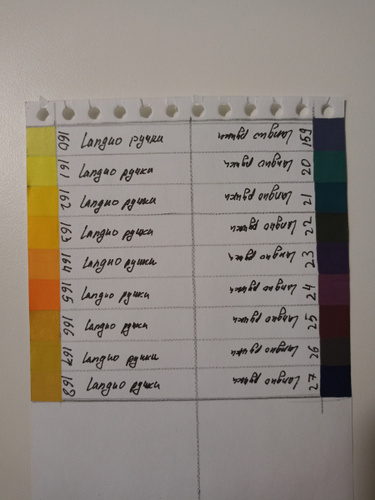 160 Languo ручки
Languo ручки 159
161 Languo ручки
Languo ручки 20
162 Languo ручки
Languo ручки 21
163 Languo ручки
Languo ручки 22
164 Languo ручки
Languo ручки 23
165 Languo ручки
Languo ручки 24
166 Languo ручки
Languo ручки 25
167 Languo ручки
Languo ручки 26
168 Languo ручки
Languo ручки 27